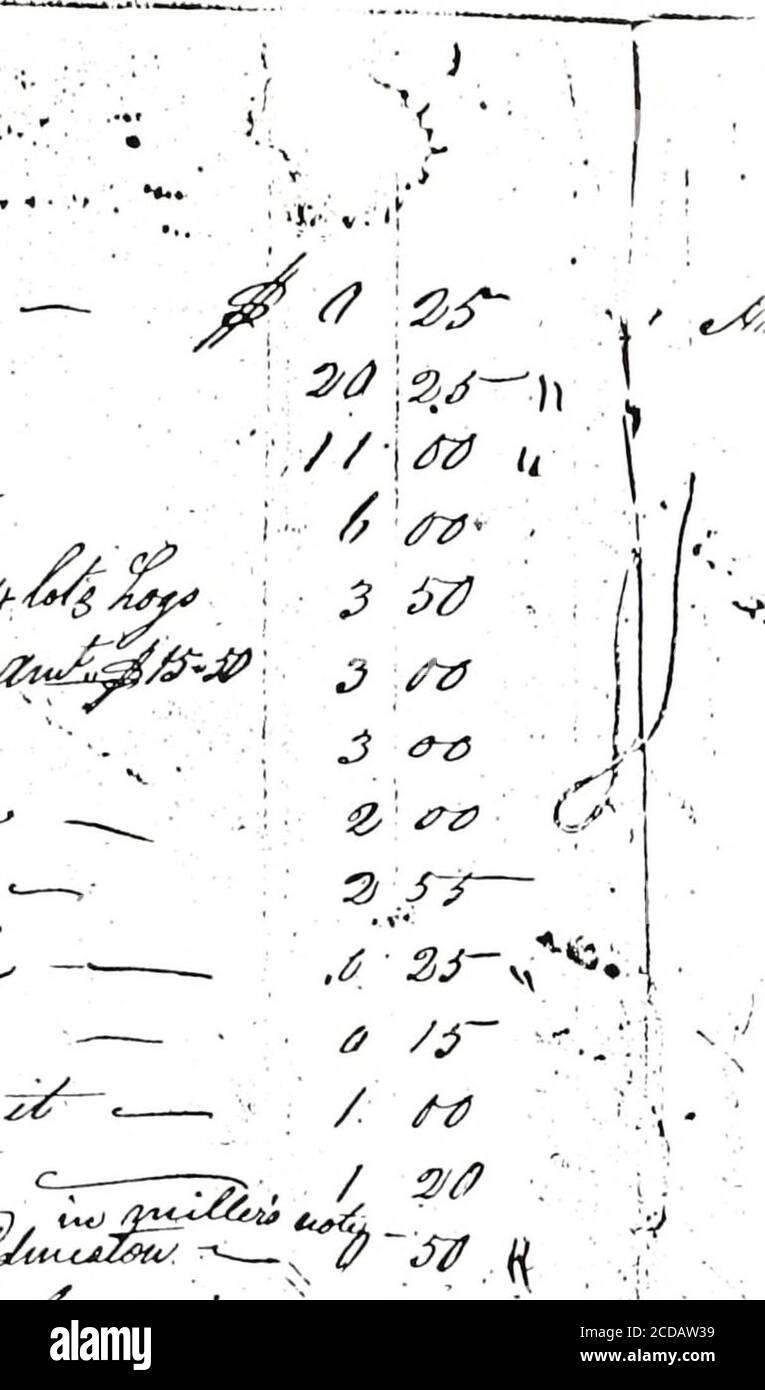 — $ 0 25
20 25 "
11 00 "
6 00
lots Logs 3 50
amt. " $15-50 3 00
3 00
— 2 00
— 2 55
— 6 25 "
— 0 15
it — 1. 00
— 1 20
in miller's note
— 0 50
alamy
Image ID: 2CDAW39
www.alamy.com